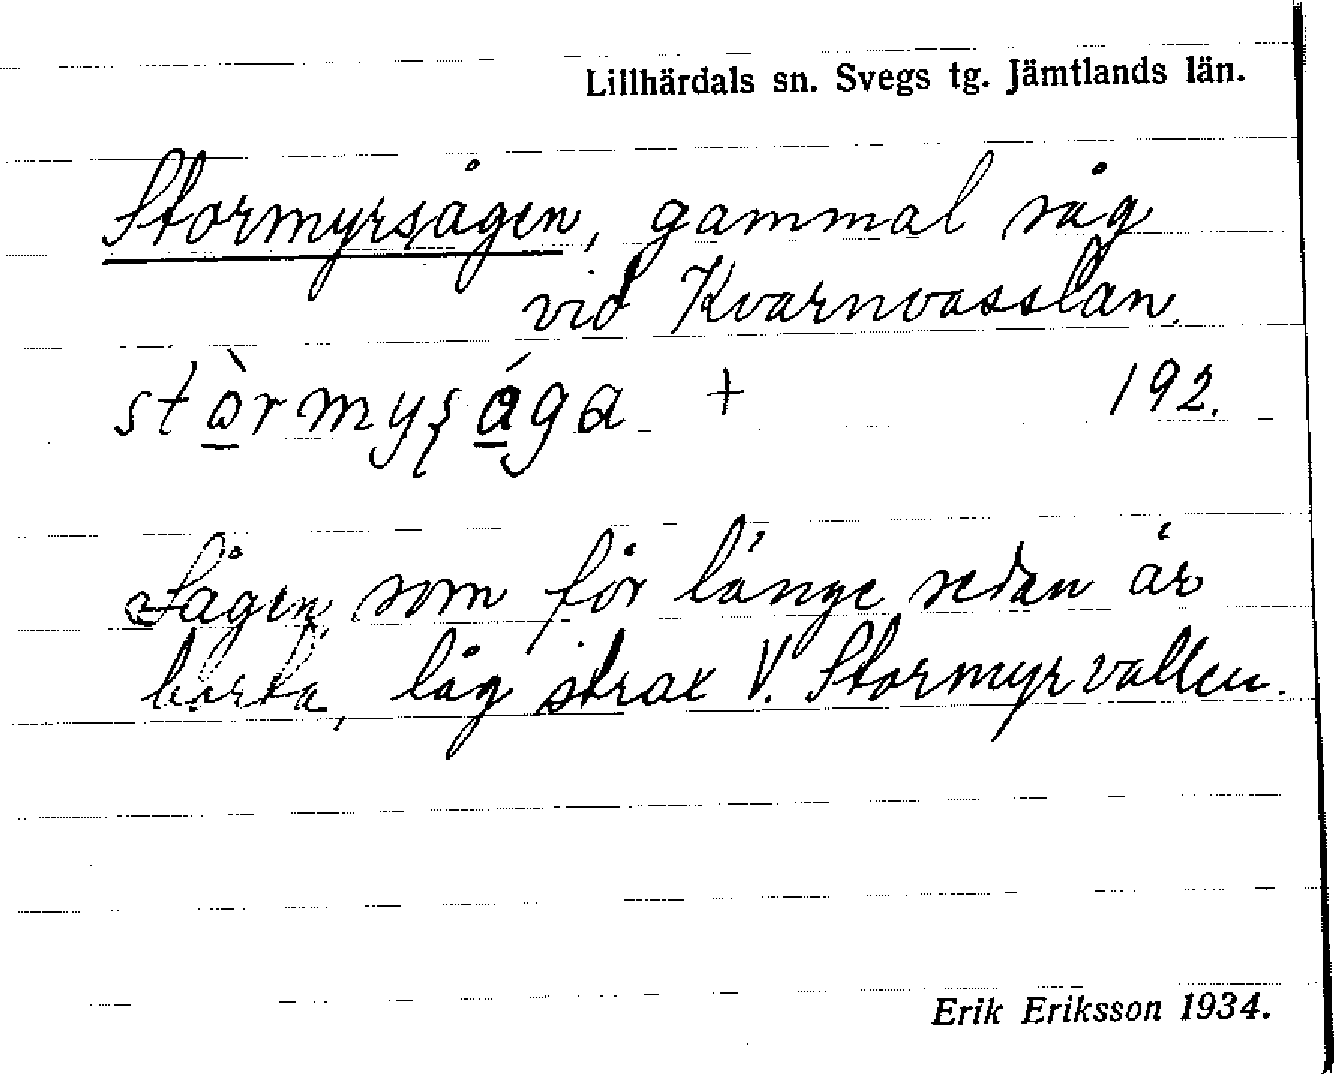 Lillhärdals sn. Svegs tg. Jämtlands län.
Stormyrsågen, gammal såg
vid Kvarnvasslan.
+ 192.
Sågen som för länge sedan är
borta, låg strax V. Stormyrvallen.
Erik Eriksson 1934.